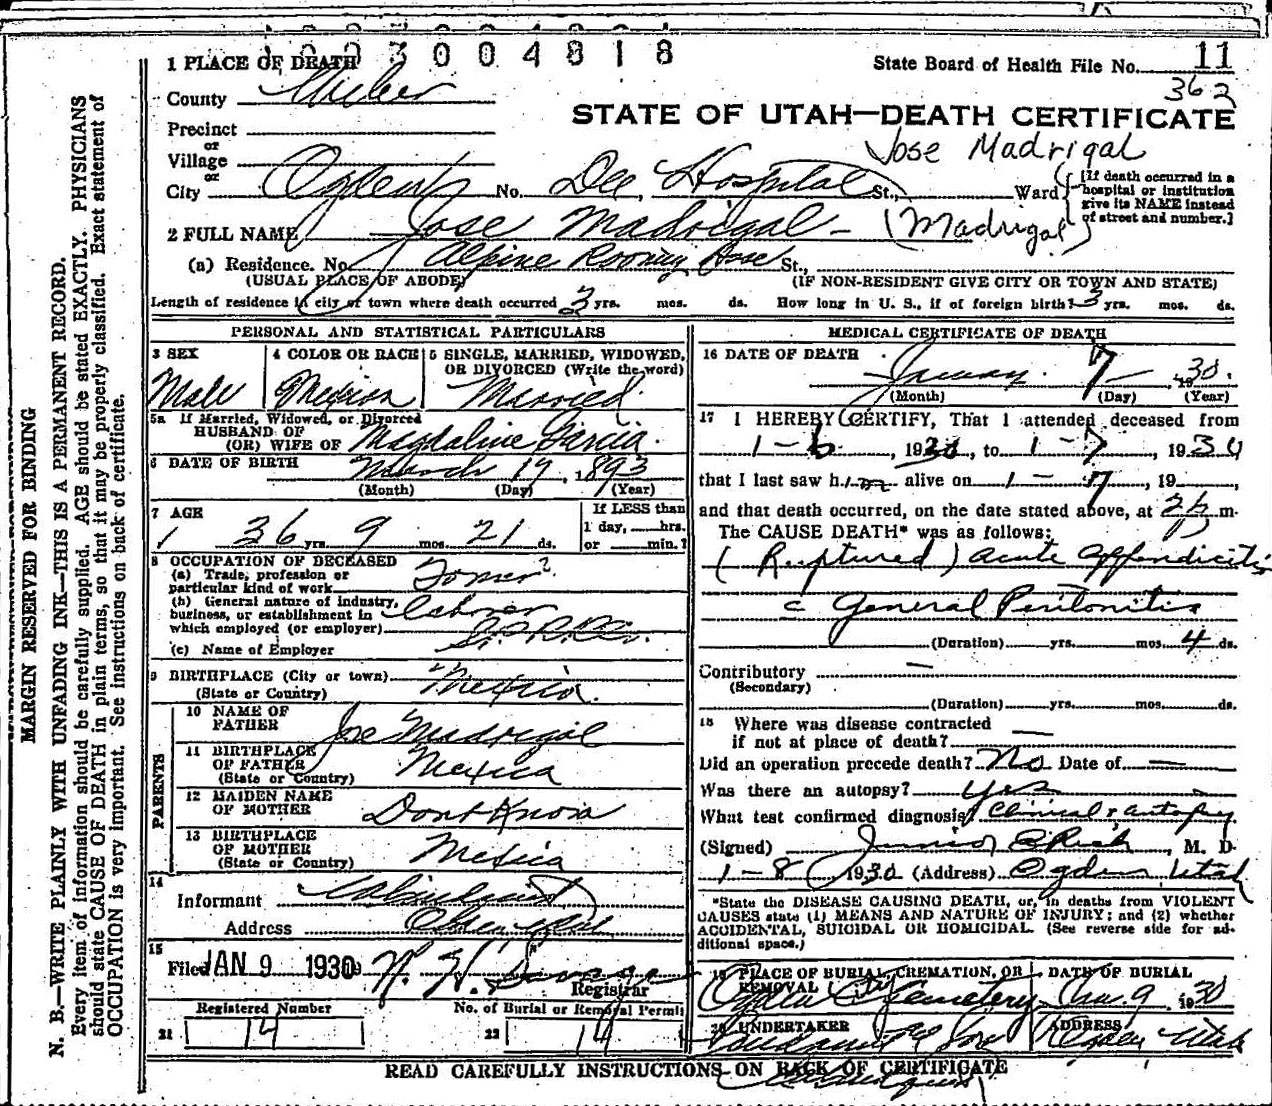 1003004818
1 PLACE OF DEATH
State Board of Health File No. 11
362
County Weber
STATE OF UTAH—DEATH CERTIFICATE
Precinct
or
Jose Madrigal
Village
or
City Ogden No. Dee Hospital St., Ward
[If death occurred in a
hospital or institution
give its NAME instead
of street and number.]
2 FULL NAME Jose Madrigal - (Madrigal)
(a) Residence. No. Alpine Rooming Hose St.,
(USUAL PLACE OF ABODE) (IF NON-RESIDENT GIVE CITY OR TOWN AND STATE)
Length of residence in city or town where death occurred 3 yrs. mos. ds. How long in U. S., if of foreign birth? 3 yrs. mos. ds.
PERSONAL AND STATISTICAL PARTICULARS
3 SEX
Male
4 COLOR OR RACE
Mexican
5 SINGLE, MARRIED, WIDOWED,
OR DIVORCED (Write the word)
Married
5a If Married, Widowed, or Divorced
HUSBAND OF
(OR) WIFE OF Magdaline Garcia.
6 DATE OF BIRTH March 17, 1893
(Month) (Day) (Year)
7 AGE
36 yrs. 9 mos. 21 ds.
If LESS than
1 day, hrs.
or min.?
8 OCCUPATION OF DECEASED
(a) Trade, profession or
particular kind of work
(b) General nature of industry,
business, or establishment in
which employed (or employer)
Laborer
(c) Name of Employer
9 BIRTHPLACE (City or town)
(State or Country) Mexico.
PARENTS
10 NAME OF
FATHER Joe Madrigal
11 BIRTHPLACE
OF FATHER
(State or Country) Mexico
12 MAIDEN NAME
OF MOTHER Dont Know
13 BIRTHPLACE
OF MOTHER
(State or Country) Mexico
14
Informant
Address Ogden Utah
15
Filed JAN 9 1930
Registrar
Registered Number
21 14
No. of Burial or Removal Permit
22 14
MEDICAL CERTIFICATE OF DEATH
16 DATE OF DEATH
January 7 - 1930.
(Month) (Day) (Year)
17 I HEREBY CERTIFY, That I attended deceased from
1-6, 1930, to 1-7, 1930
that I last saw him alive on 1-7, 19,
and that death occurred, on the date stated above, at m.
The CAUSE DEATH* was as follows:
(Ruptured) acute appendicitis
c General Peritonitis
(Duration) yrs. mos. 4 ds.
Contributory —
(Secondary)
(Duration) yrs. mos. ds.
18 Where was disease contracted
if not at place of death? —
Did an operation precede death? No Date of —
Was there an autopsy? yes
What test confirmed diagnosis? Clinical & autopsy.
(Signed) Junior E Rich, M. D.
1-8 1930 (Address) Ogden Utah
*State the DISEASE CAUSING DEATH, or, in deaths from VIOLENT
CAUSES state (1) MEANS AND NATURE OF INJURY; and (2) whether
ACCIDENTAL, SUICIDAL OR HOMICIDAL. (See reverse side for ad-
ditional space.)
19 PLACE OF BURIAL, CREMATION, OR
REMOVAL
Ogden City Cemetery
DATE OF BURIAL
Jan. 9 1930
20 UNDERTAKER
ADDRESS
Ogden Utah
READ CAREFULLY INSTRUCTIONS ON BACK OF CERTIFICATE
MARGIN RESERVED FOR BINDING
N. B.—WRITE PLAINLY WITH UNFADING INK—THIS IS A PERMANENT RECORD.
Every item of information should be carefully supplied. AGE should be stated EXACTLY. PHYSICIANS
should state CAUSE OF DEATH in plain terms, so that it may be properly classified. Exact statement of
OCCUPATION is very important. See instructions on back of certificate.